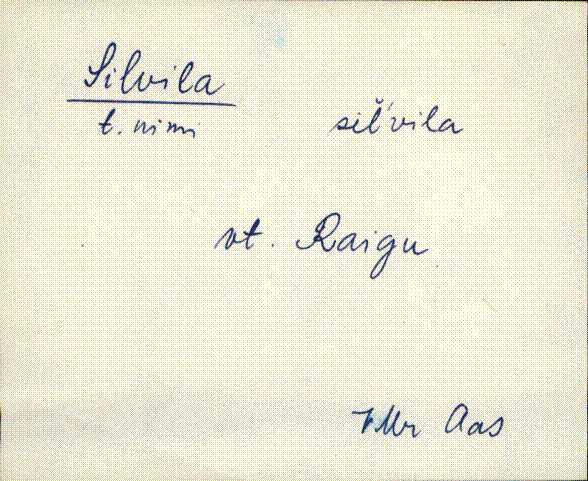 Silvila
t. nimi sil̆'vila
vt. Raigu
VMr Aas